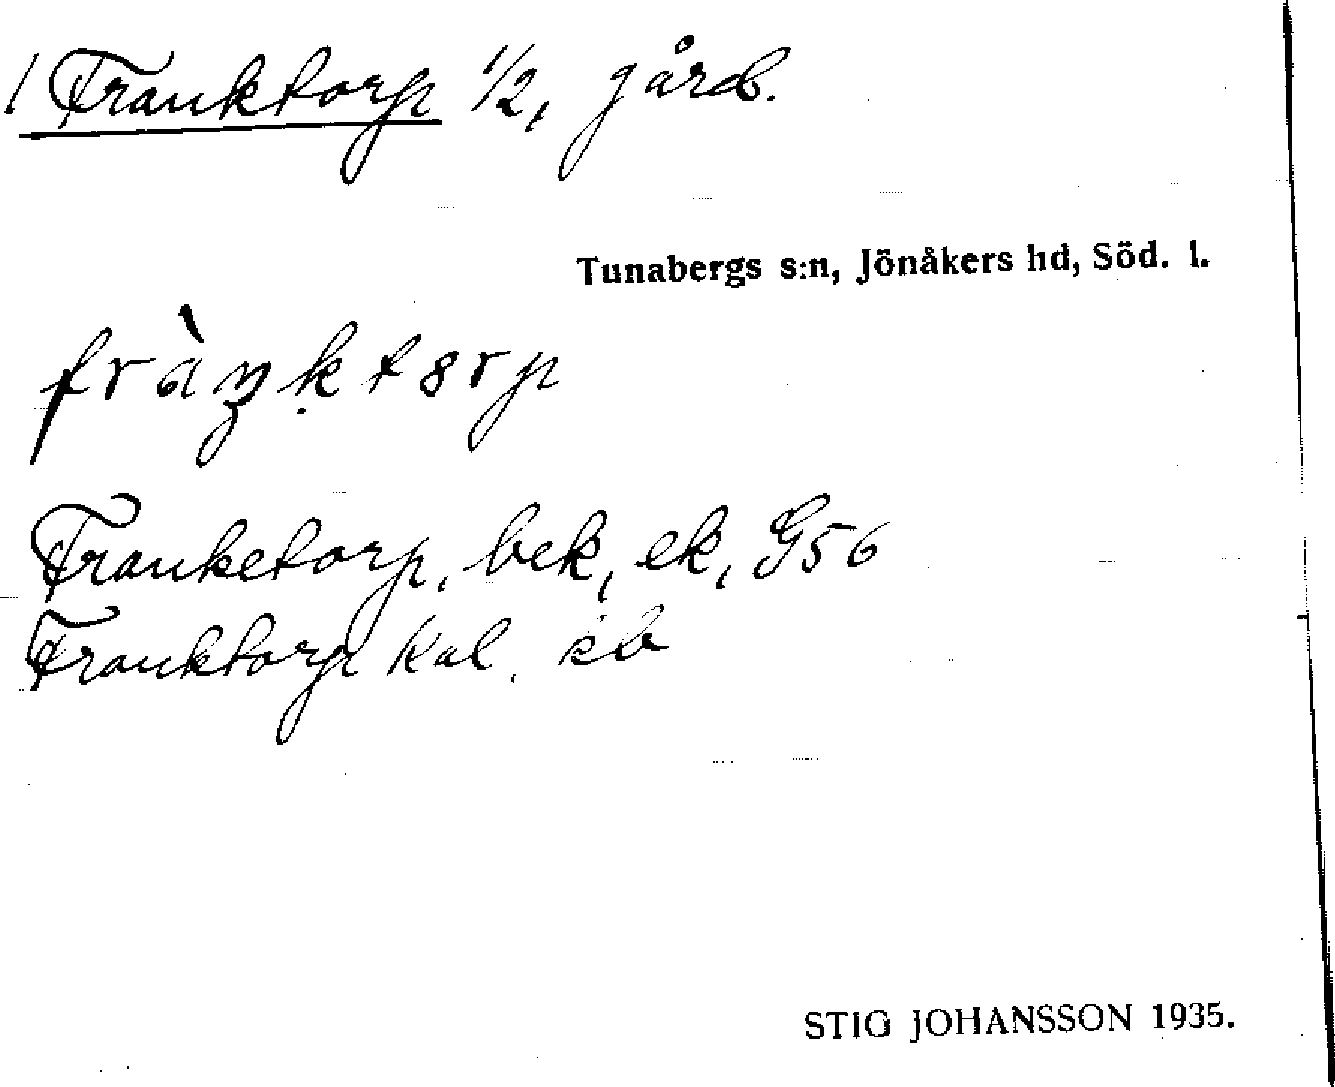 / Franktorp 1/2, gård.
Tunabergs s:n, Jönåkers hd, Söd. l.
fràŋktɞrp
Franketorp, bek, ek, G56
Franktorp kal. sb
STIG JOHANSSON 1935.